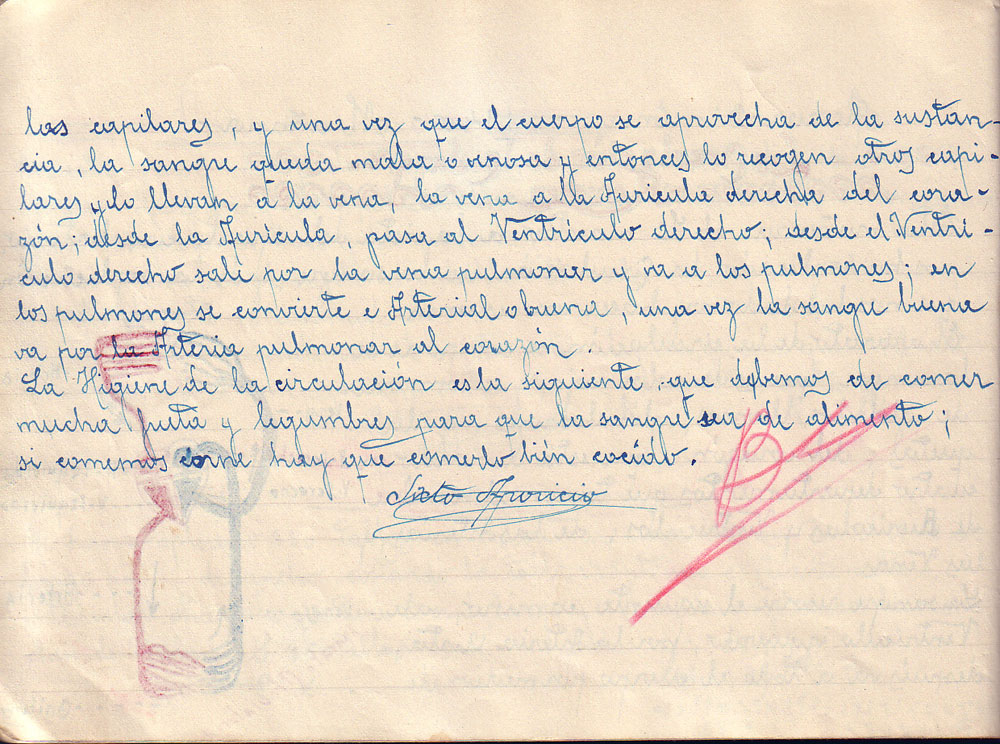 las capilares, y una vez que el cuerpo se aprovecha de la sustan-
cia, la sangre queda mala o venosa y entonces lo recogen otros capi-
lares y lo llevan a la vena, la vena a la Auricula derecha del cora-
zón; desde la Auricula, pasa al Ventriculo derecho; desde el Ventri-
culo derecho sale por la vena pulmonar y va a los pulmones; en
los pulmones se convierte e Arterial o buena, una vez la sangre buena
va por la Arteria pulmonar al corazón
La Higiene de la circulación es la siguiente que debemos de comer
mucha fruta y legumbres para que la sangre sea de alimento;
si comemos carne hay que comerlo bién cocido.
Sixto Aparicio
B